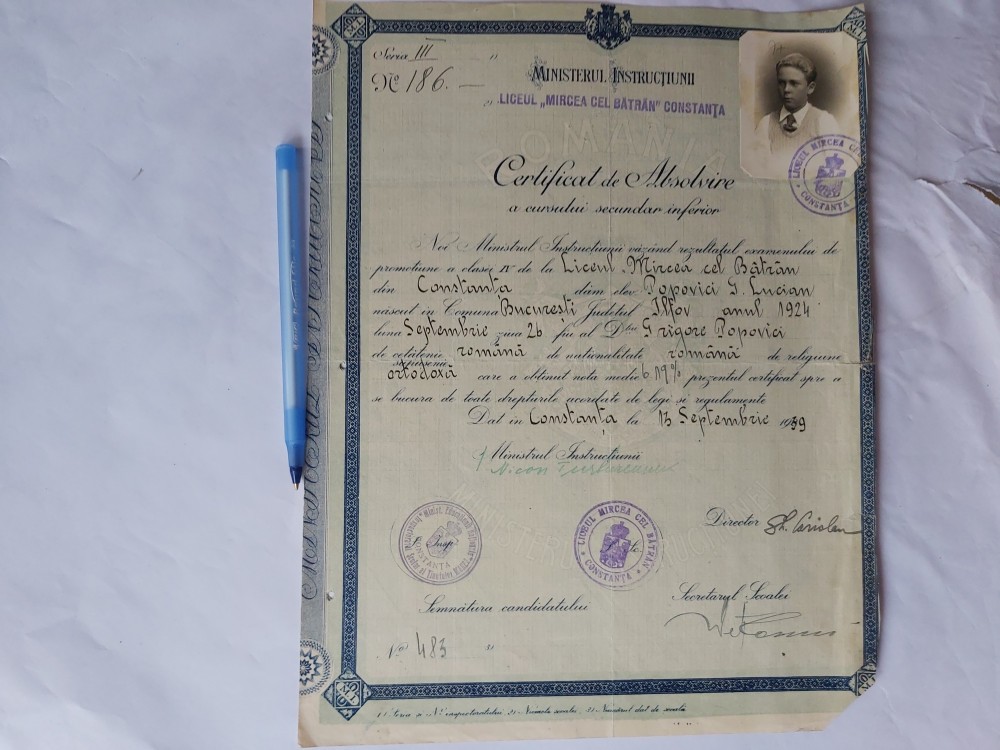 Seria III 1)
No 186. —
MINISTERUL INSTRUCȚIUNII
2) LICEUL „MIRCEA CEL BĂTRÂN" CONSTANȚA
ROMANIA
LICEUL MIRCEA CEL
CONSTANȚA
Certificat de Absolvire
a cursului secundar inferior
Noi Ministrul Instrucțiunii văzând rezultatul examenului de
promoțiune a clasei IV de la Liceul „Mircea cel Bătrân
din Constanța dăm elev Popovici I. Lucian
născut în Comuna București Județul Ilfov anul 1924
luna Septembrie ziua 26 fiu al D-lui Grigore Popovici
de cetățenie română de naționalitate română de religiune
supușenie
ortodoxă care a obținut nota medie prezentul certificat spre a
se bucura de toate drepturile acordate de legi și regulamente
Dat în Constanța la 13 Septembrie 1939
Ministrul Instrucțiunii
Director Gh.
LICEUL MIRCEA CEL BĂTRÂN
CONSTANȚA
CONSTANTA
Semnătura candidatului
Secretarul Școalei
No 483 3)
1) Seria și No inspectoratului, 2) Numele școalei, 3) Numărul dat de școală